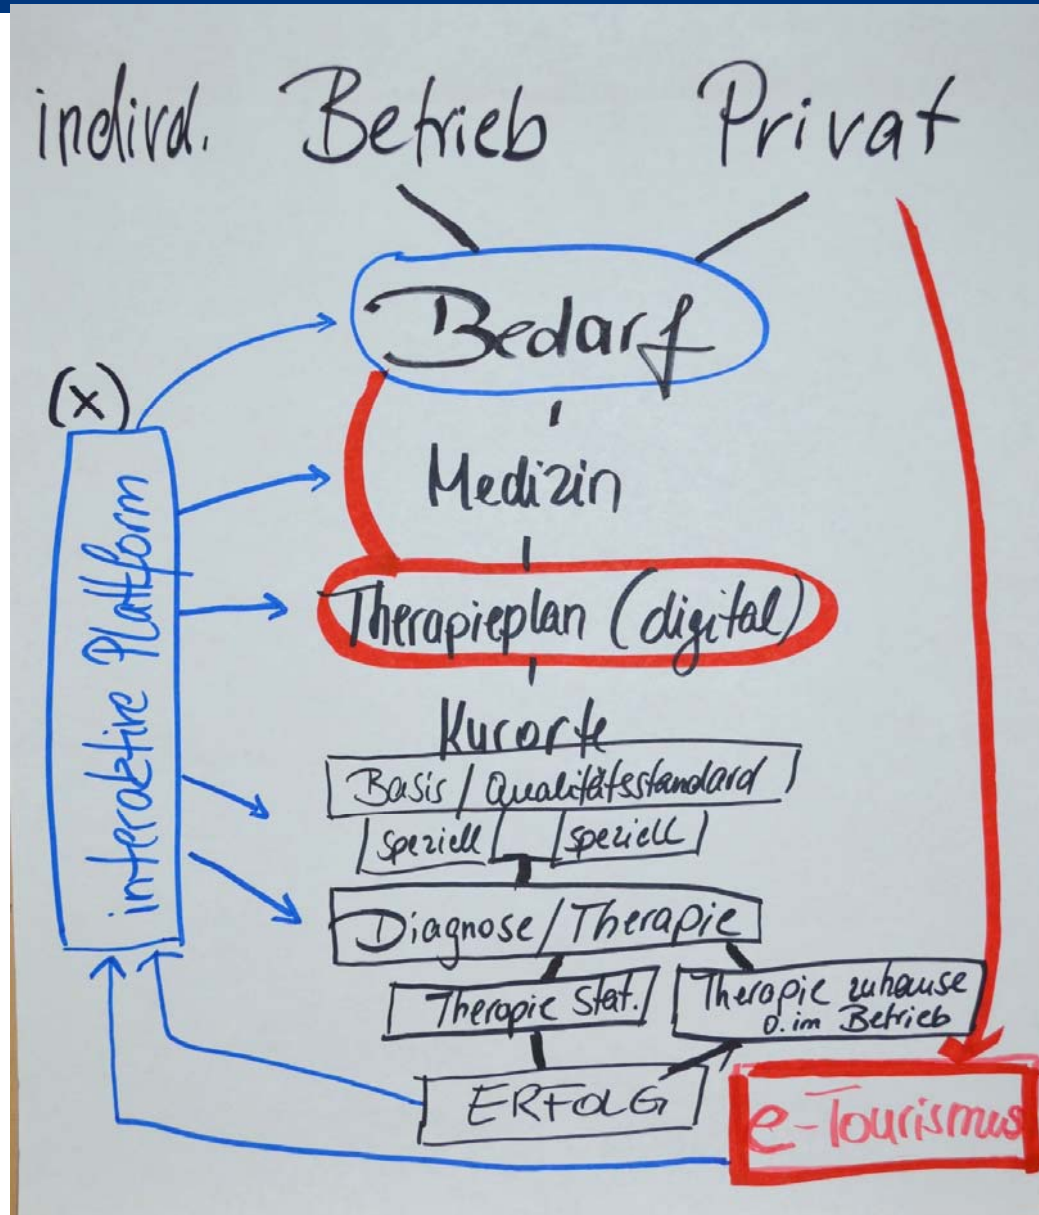 individ. Betrieb Privat
Bedarf
(x)
Medizin
interaktive Plattform
Therapieplan (digital)
Kurorte
Basis / Qualitätsstandard
speziell speziell
Diagnose / Therapie
Therapie Stat.
Therapie zuhause
o. im Betrieb
ERFOLG
e-Tourismus